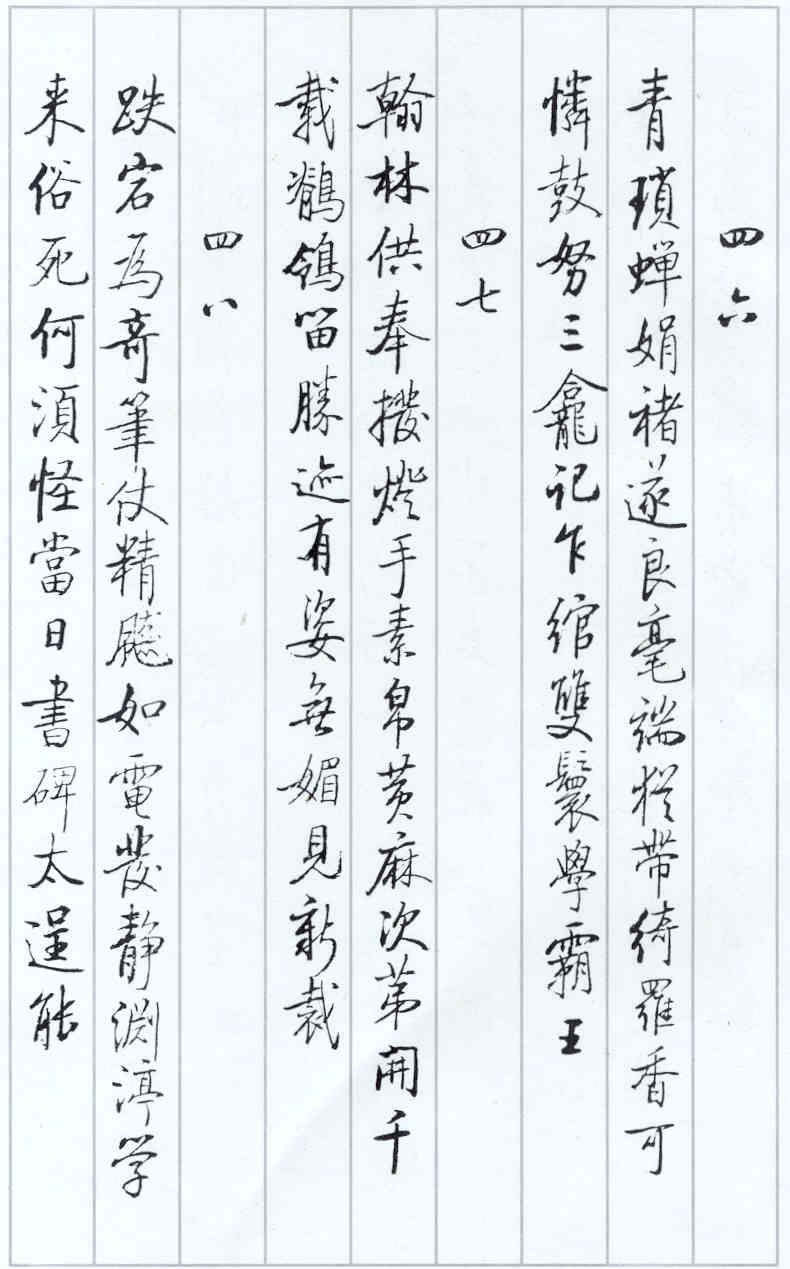 四六
青瑣蟬娟褚遂良毫端猶帶綺羅香可
憐鼓努三龕記乍綰雙鬟學霸王
四七
翰林供奉撥燈手素帛黄麻次苐開千
載鶺鴒留勝迹有姿無媚見新裁
四八
跌宕為奇筆仗精飈如電發靜淵渟学
来俗死何須怪當日書碑太逞能